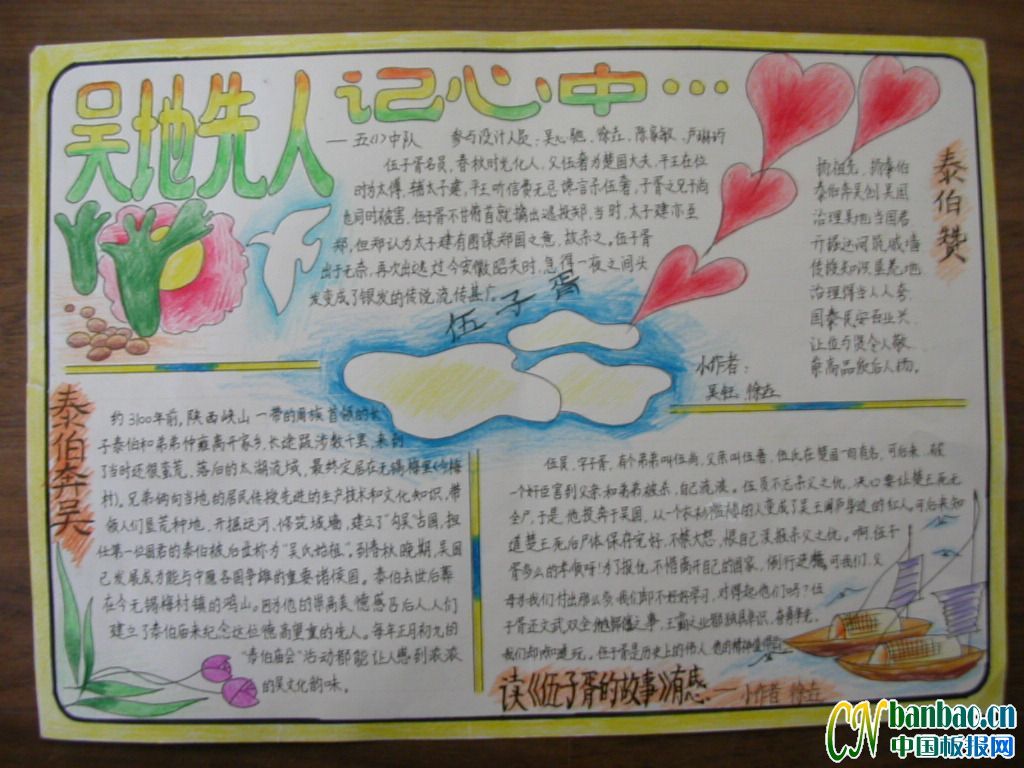 吴地先人 记心中…
— 五(1)中队 参与设计人员：吴心驰、徐垚、陈家敏、卢琳巧
伍子胥名员，春秋时先化人，父伍奢为楚国大夫，平王在位
时为太傅，辅太子建，平王听信费无忌谗言杀伍奢，子胥之兄子尚
也同时被害，伍子胥不甘俯首就擒出逃投郑，当时，太子建亦至
郑，但郑认为太子建有图谋郑国之意，故杀之。伍子胥
出于无奈，再次出逃，过今安徽昭关时，急得一夜之间头
发变成了银发的传说流传甚广
伍子胥
泰伯赞
扬祖先，扬泰伯
泰伯奔吴创吴国
治理吴地当国君
开掘运河筑城墙
传授知识垦荒地
治理得当人人夸
国泰民安百业兴
让位与贤令人敬
崇高品
小作者：
吴钰、徐垚
泰伯奔吴
约3100年前，陕西岐山一带的周族首领的长
子泰伯和弟弟仲雍离开家乡，长途跋涉数千里，来到
了当时还很蛮荒、落后的太湖流域，最终定居在无锡梅里(今梅
村)。兄弟俩向当地的居民传授先进的生产技术和文化知识，带
领人们垦荒种地、开掘运河、修筑城墙，建立了“勾吴”古国，担
任第一位国君的泰伯被后世称为“吴氏始祖”。到春秋晚期，吴国
已发展成为能与中原各国争雄的重要诸侯国。泰伯去世后葬
在今无锡梅村镇的鸿山。因为他的崇高美德感召后人，人们
建立了泰伯庙来纪念这位德高望重的先人。每年正月初九的
“泰伯庙会”活动都能让人感到浓浓
的吴文化韵味。
伍员，字子胥，有个弟弟叫伍尚，父亲叫伍奢，伍氏在楚国一向有名，可后来，被
一个奸臣害到父亲和弟弟被杀，自己流浪。伍员不忘杀父之仇，决心要让楚王死无
全尸，于是，他投奔于吴国，从一个衣衫褴褛的人变成了吴王阖庐身边的红人，可后来知
道楚王死后尸体保存完好，不禁大怒，恨自己没报杀父之仇。啊，伍子
胥多么的孝顺呀！为了报仇，不惜离开自己的国家，倒行逆施。可我们，父
母为我们付出那么多，我们却不好好学习，对得起他们吗？伍
子胥还文武双全，王霸之业都独具卓识，
我们却只知道玩。伍子胥是历史上的伟人，他的精神值得
读《伍子胥的故事》有感 — 小作者 徐垚
CNbanbao.cn
中国板报网